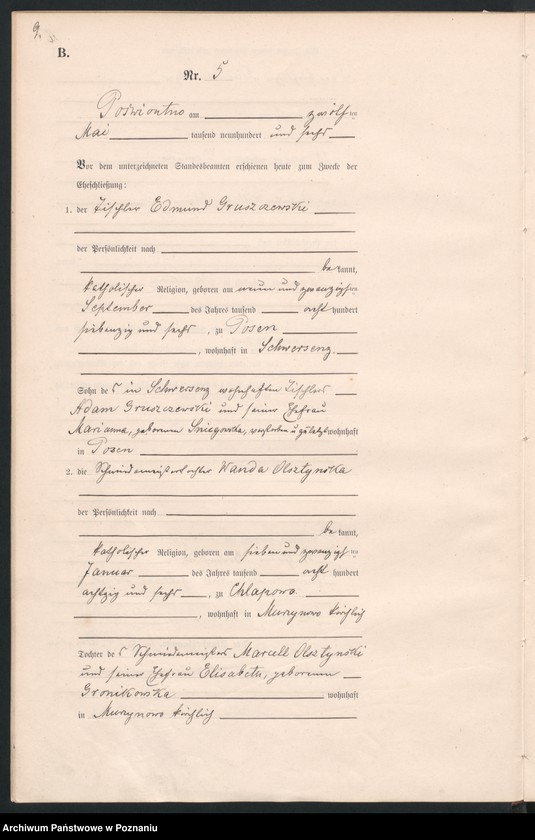 9.
B.
Nr. 5
Poświontno am zwölften
Mai tausend neunhundert und sechs
Vor dem unterzeichneten Standesbeamten erschienen heute zum Zwecke der
Eheschließung:
1. der Tischler Edmund Gruszczewski
der Persönlichkeit nach
be kannt,
katholischer Religion, geboren am neun und zwanzigsten
September des Jahres tausend acht hundert
siebenzig und sechs, zu Posen
, wohnhaft in Schwersenz.
Sohn des in Schwersenz wohnhaften Tischlers
Adam Gruszczewski und seiner Ehefrau
Marianna, geborenen Sniegowska, verstorben u zuletzt wohnhaft
in Posen
2. die Schmiedemeistertochter Wanda Olsztyńska
der Persönlichkeit nach
be kannt,
katholischer Religion, geboren am sieben und zwanzigsten
Januar des Jahres tausend acht hundert
achtzig und sechs, zu Chlapowo
, wohnhaft in Murzynowo kirchlich
Tochter des Schmiedemeisters Marcell Olsztyński
und seiner Ehefrau Elisabeth, geborenen
Gronikowska wohnhaft
in Murzynowo kirchlich
Archiwum Państwowe w Poznaniu